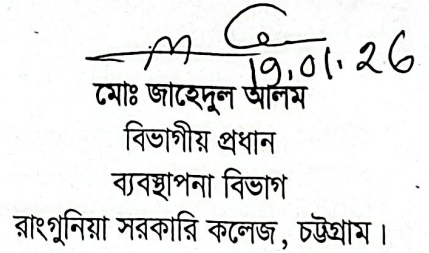 19.01.26
মোঃ জাহেদুল আলম
বিভাগীয় প্রধান
ব্যবস্থাপনা বিভাগ
রাংগুনিয়া সরকারি কলেজ, চট্টগ্রাম।